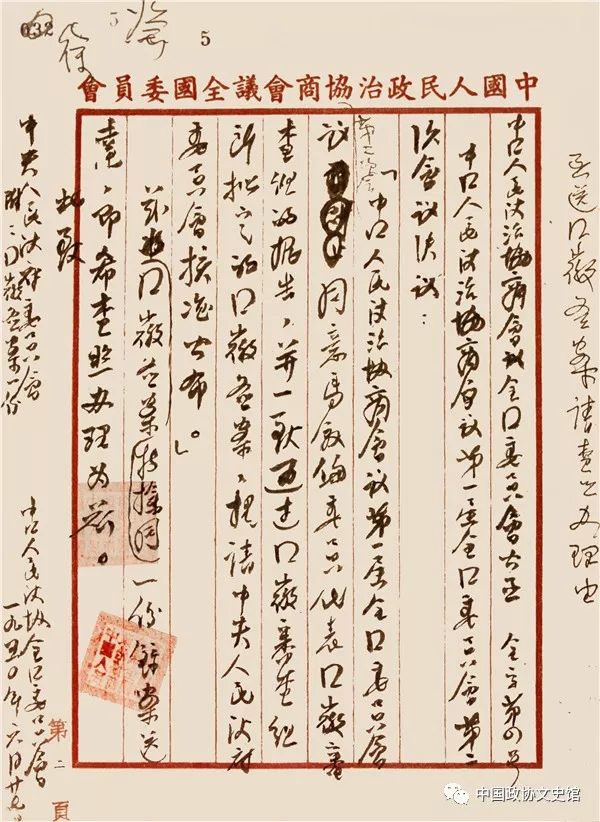 032
5
5
中國人民政治協商會議全國委員會
函送口徽图案请查照办理由
中口人民政治协商会议全口委员会公函 全字第四号
中口人民政治协商会议第一届全口委员会第二
次会议决议：
「中口人民政治协商会议第一届全口委员会
第二次会
议同意马叙伦委员代表口徽审
查组的报告，并一致通过口徽审查组
所拟定的口徽图案，提请中央人民政府
委员会核准公布。」
口徽图案特检同一份録案送
达，即希查照办理为荷。
此致
中央人民政府委员会
附：口徽图案一份
中口人民政协全口委员会
一九五〇年六月廿
第二頁
中国政协文史馆